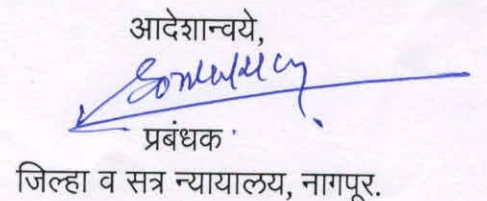 आदेशान्वये,
प्रबंधक
जिल्हा व सत्र न्यायालय, नागपूर.